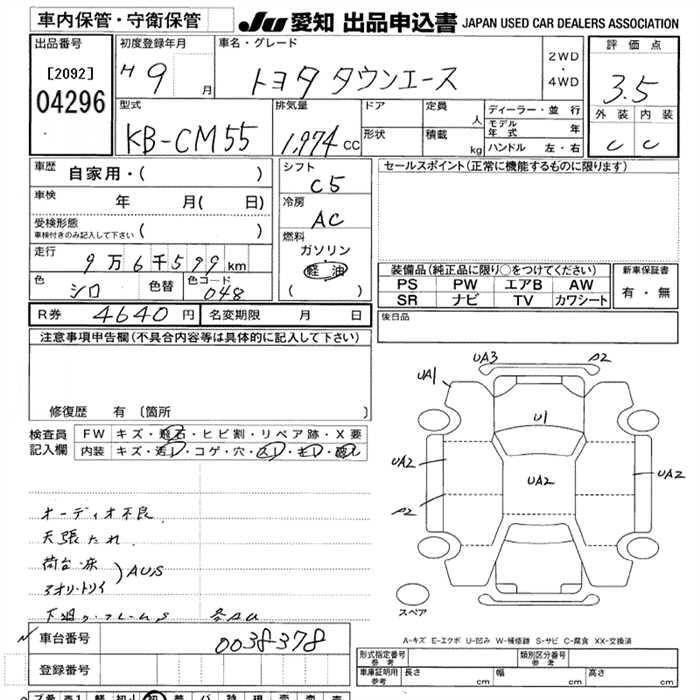 車内保管・守衛保管
JU 愛知 出品申込書 JAPAN USED CAR DEALERS ASSOCIATION
出品番号
[2092]
04296
初度登録年月
H 9 月
車名・グレード
トヨタ タウンエース
2WD
・
4WD
評価点
3.5
外装 内装
C C
型式
KB-CM55
排気量
1,974 cc
ドア
形状
定員 人
積載 kg
ディーラー・並 行
モデル年式 年
ハンドル 左・右
車歴 自家用・( )
車検 年 月( 日)
受検形態
車検付きのみ記入して下さい ( )
走行
9万6千599km
色 シロ 色替 色コード 048
シフト
C5
冷房
AC
燃料
ガソリン
軽油
( )
セールスポイント(正常に機能するものに限ります)
装備品(純正品に限り○をつけてください)
PS PW エアB AW
SR ナビ TV カワシート
新車保証書
有・無
R券 4640円 名変期限 月 日
後日品
注意事項申告欄(不具合内容等は具体的に記入して下さい)
修復歴 有〔箇所 〕
検査員
記入欄
FW キズ・飛石・ヒビ割・リペア跡・X要
内装 キズ・汚レ・コゲ・穴
オーディオ不良
天張たれ
荷台・床
アオリ・トリイ
)AUS
UA3
A2
UA1
U1
UA2
UA2
UA2
A2
スペア
A-キズ E-エクボ U-凹み W-補修跡 S-サビ C-腐食 XX-交換済
車台番号 0038378
登録番号
形式指定番号
参考
類別区分番号
参考
車庫証明用
参考
長さ cm 幅 cm 高さ cm